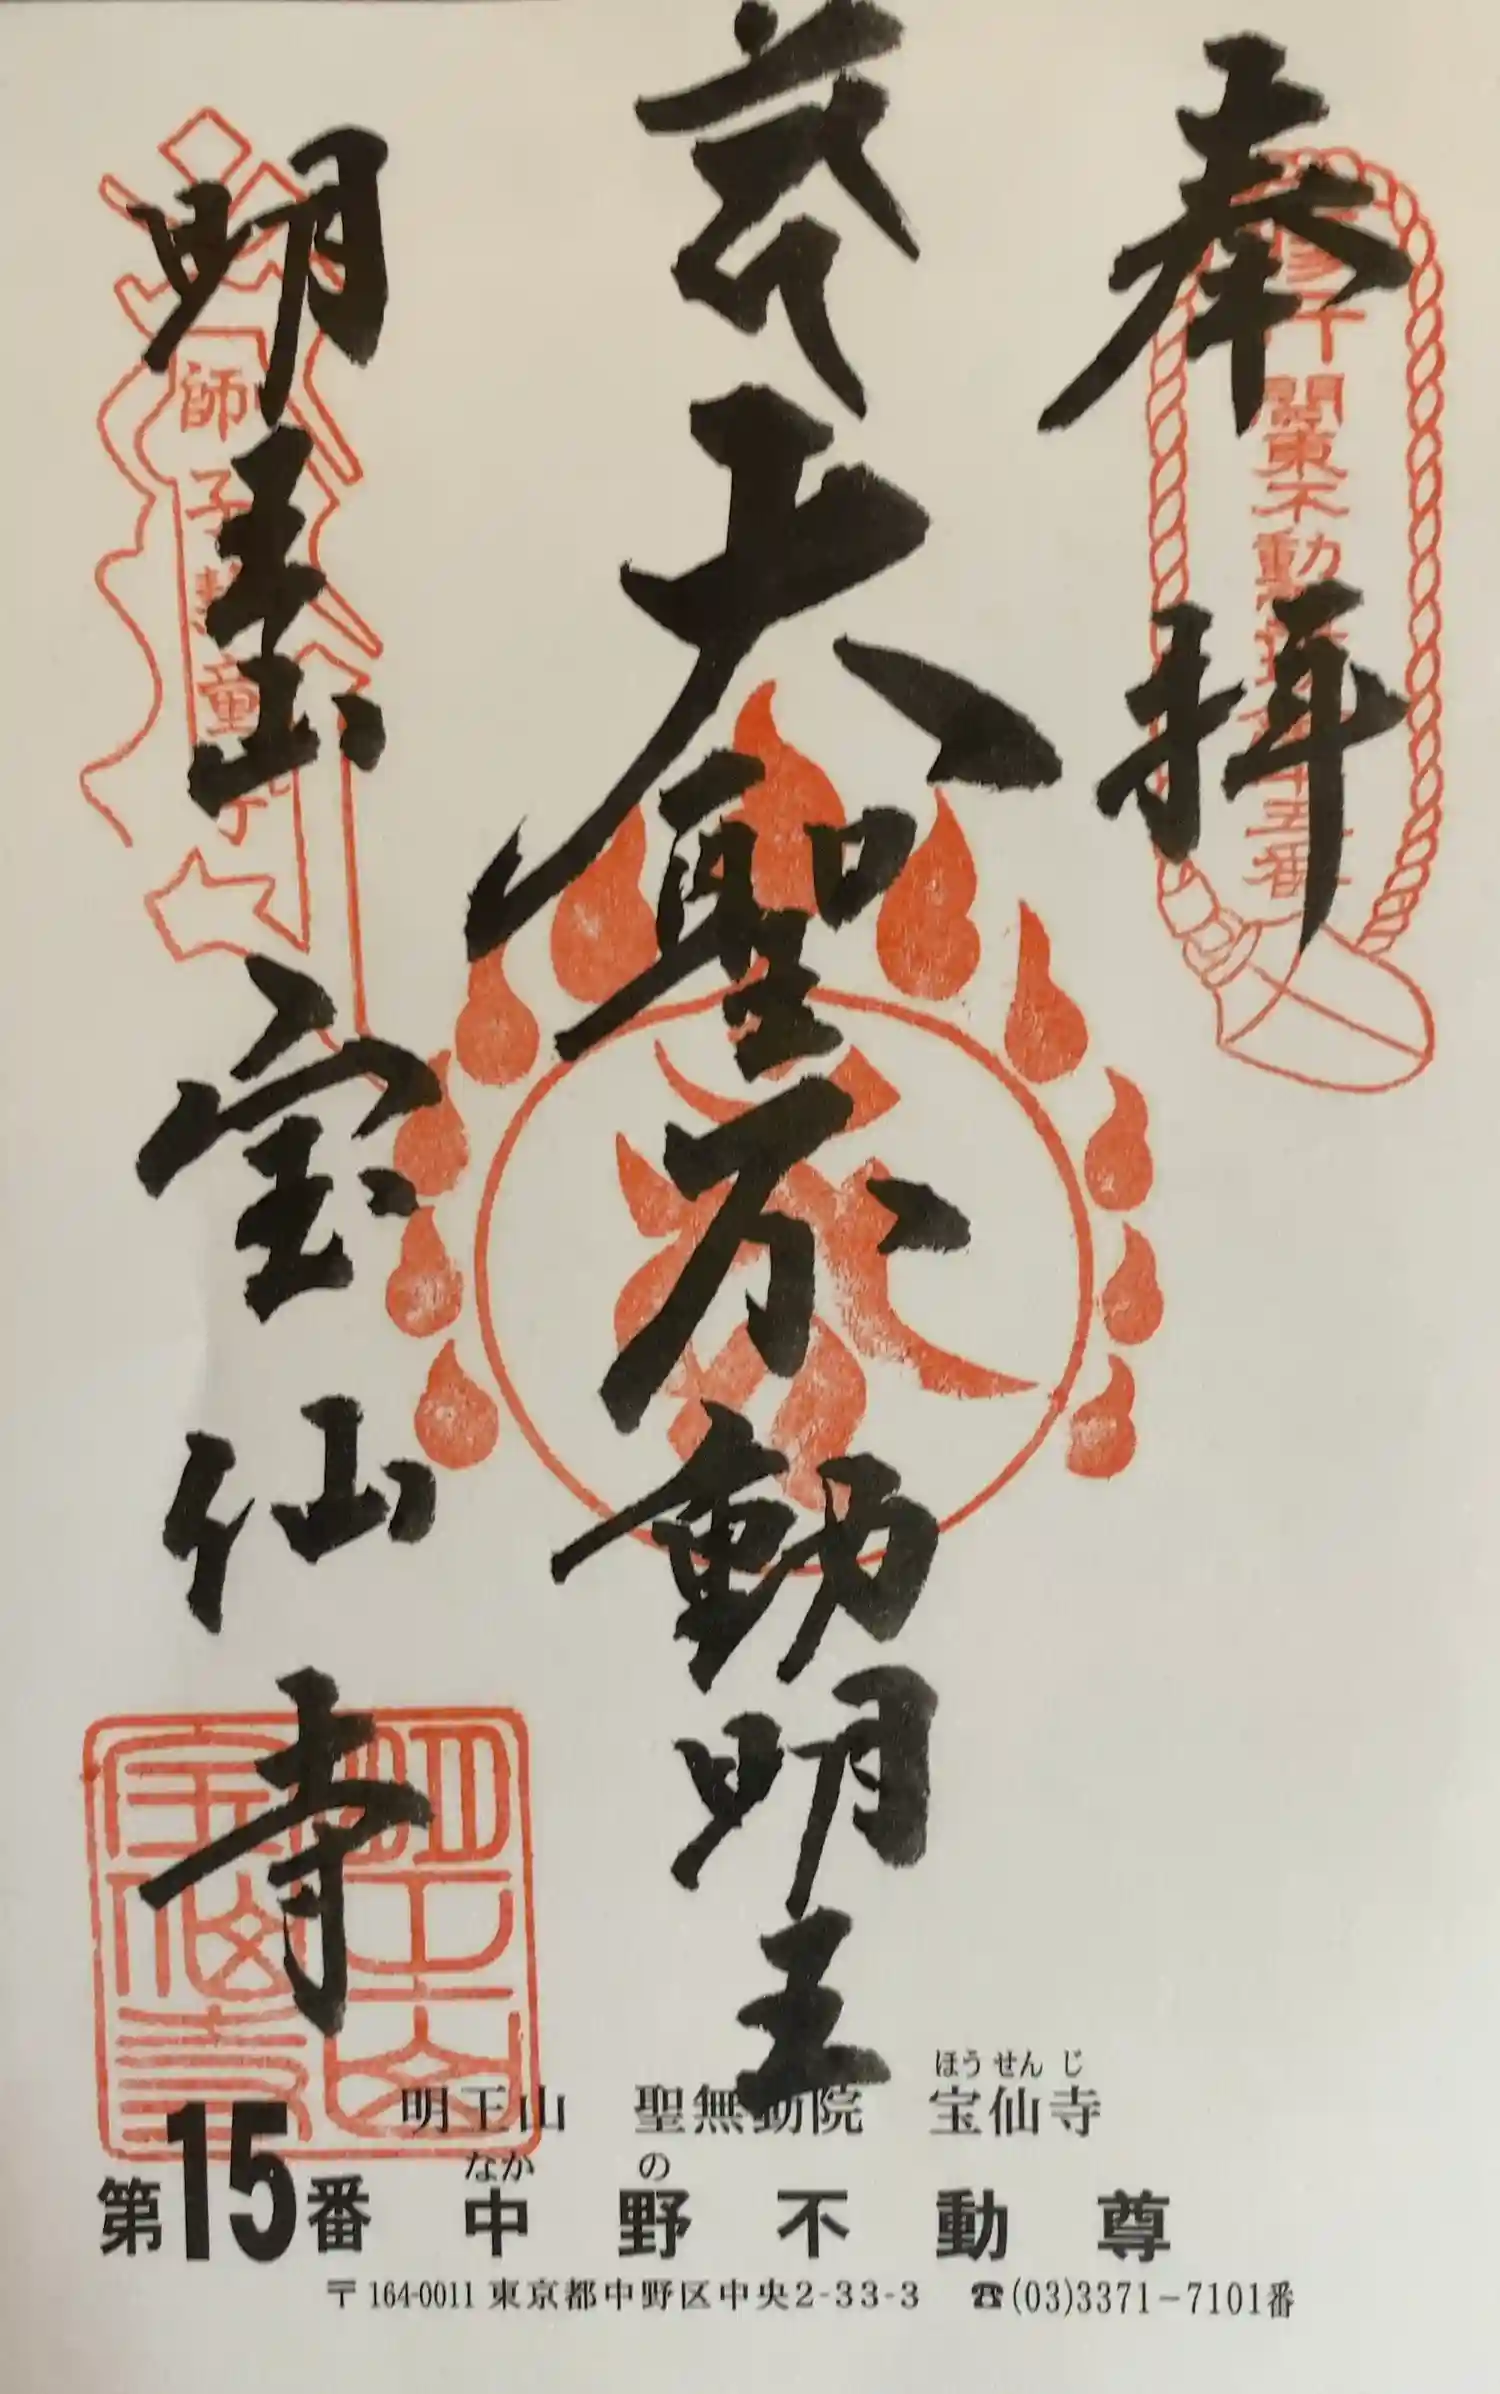 奉拝
大聖不動明王
明王山
宝仙寺
関東不動
師子
童子
五番
明王山 宝仙寺
明王山 聖無動院 宝仙寺
ほうせんじ
第15番 中野不動尊
なかの
〒164-0011 東京都中野区中央2-33-3 ☎(03)3371-7101番